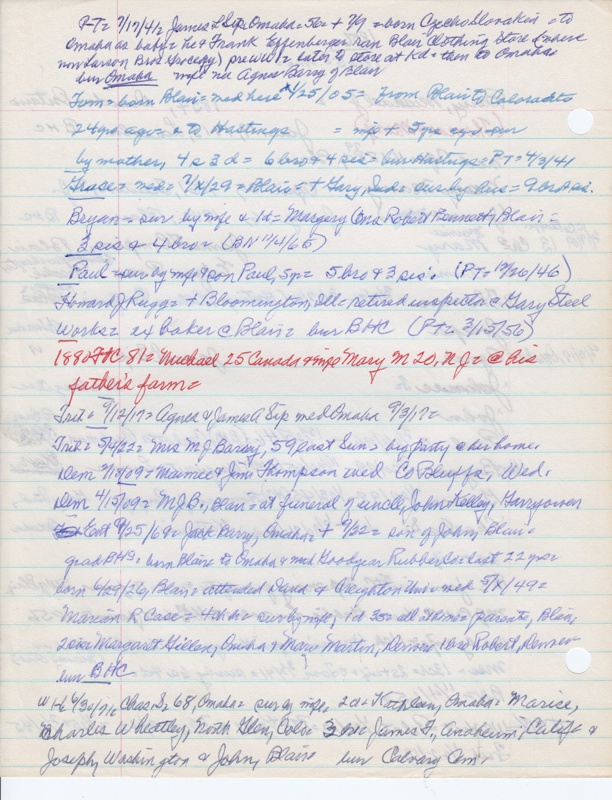 PT= 7/17/41, James L Sip, Omaha= 56= + 7/9 = born Czechoslovakia = to
Omaha as baby= he & Frank Effenberger ran Blair Clothing Store (where
now Larson Bros Grocery) prewwI= later to store at Kd= then to Omaha=
bur Omaha mp= na Agnes Barry of Blair
Tom= born Blair= med here 4/25/05= from Blair to Colorado
24 yrs ago= to Hastings = mp+ 5 yrs ago= sur
by mother, 4 s 3 d = 6 bro & 4 sis= bur Hastings= PT= 4/3/41
Grace= med= 7/X/29= Blair= + Gary, Ind= sur by hus= 9 bro & sis.
Bryan= sur by mp & 1d= Margery (Mrs Robert Bennett, Blair=
3 sis & 4 bro= (BN 11/4/65)
Paul= sur by mp & son Paul, 5 p= 5 bro & 3 sis. (PT= 12/26/46)
Howard J Rugg= + Bloomington, Ill= retired inspector @ Gary Steel
Works= ex baker @ Blair= bur BHC (PT= 3/15/56)
1880 FHC 81= Michael 25 Canada & mp Mary M 20, NJ= @ his
father's farm=
Trib= 9/12/17= Agnes & James A Sip med Omaha 9/3/17=
Trib= 5/4/22= Mrs M J Barry, 59 last Sun= big party @ her home.
Dem 7/1/09= Mamie & Jim Thompson wed Co Bluffs, Wed.
Dem 4/15/09= M.J.B., Blair= at funeral of uncle, John Kelley, Garryowen
Ent 9/25/69= Jack Barry, Omaha= + 9/22= son of John, Blair=
grad BHS= born Blair to Omaha & med Goodyear Rubber Co last 22 yrs=
born 6/29/26, Blair= attended Dana & Creighton Univ= med 5/X/49=
Marian R Case= 4 ch= sur by mp, 1 d 3 s= all at home= parents, Blair,
2 sis= Margaret Gillen, Omaha & Mary Martin, Denver 1 bro Robert, Denver
bur BHC
WH 4/30/76 Chas S, 68, Omaha= sur by mp, 2 d= Kathleen, Omaha= Marise,
Charles Wheatley, North Glen, Colo= 3 bro= James F, Anaheim, Calif &
Joseph, Washington & John, Blair= bur Calvary Cem.